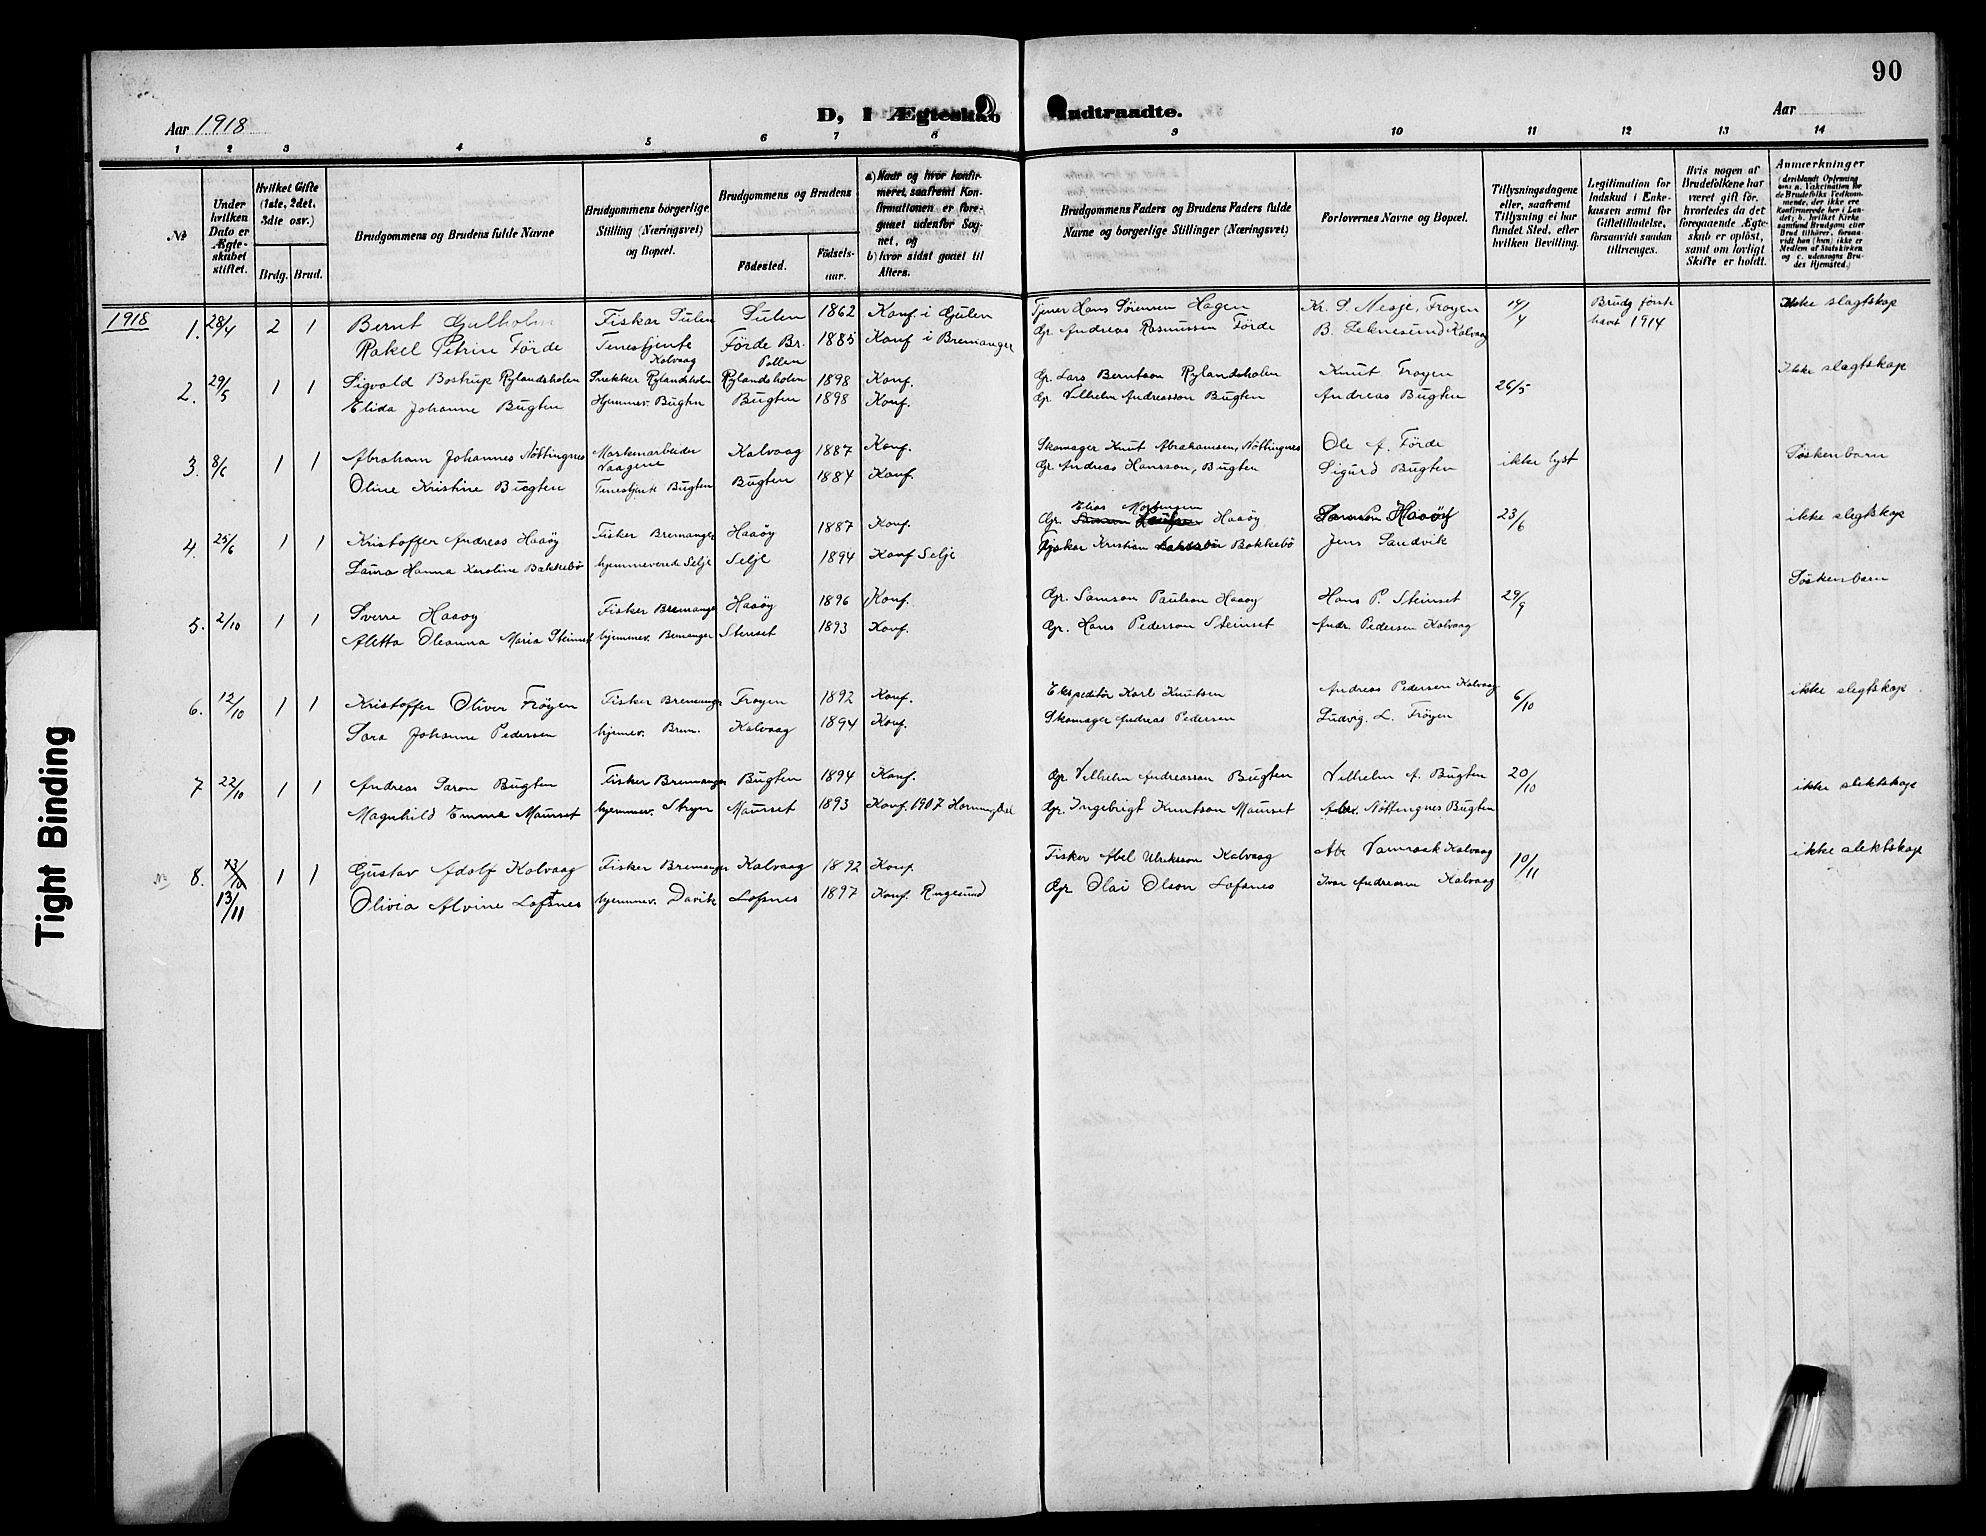 90
Aar 1918
D, I Ægteskab Indtraadte.
Aar
1 2 3 4 5 6 7 8 9 10 11 12 13 14
№
Under hvilken Dato er Ægteskabet stiftet.
Hvilket Gifte (1ste, 2det, 3die osv.)
Brdg. Brud.
Brudgommens og Brudens fulde Navne
Brudgommens borgerlige Stilling (Næringsvei) og Bopæl.
Brudgommens og Brudens
Fødested.
Fødselsaar.
a) Naar og hvor konfirmeret, saafremt Konfirmationen er foregaaet udenfor Sognet, og
b) hvor sidst gaaet til Alters.
Brudgommens Faders og Brudens Faders fulde Navne og borgerlige Stillinger (Næringsvei)
Forlovernes Navne og Bopæl.
Tillysningsdagene eller, saafremt Tillysning ei har fundet Sted, efter hvilken Bevilling.
Legitimation for Indskud i Enkekassen samt for Giftetilladelse, forsaavidt saadan tiltrænges.
Hvis nogen af Brudefolkene har været gift før, hvorledes da det foregaaende Ægteskab er opløst, samt om lovligt Skifte er holdt.
Anmærkninger
(deriblandt Oplysning om: a. Vaccination for de Brudefolks Vedkommende, der ikke ere Konfirmerede her i Landet; b. hvilket Kirkesamfund Brudgom eller Brud tilhører, forsaavidt han (hun) ikke er Medlem af Statskirken og c. udensogns Brudes Hjemsted.)
1918
1. 28/4 2 1 Bernt Gulholm Fisker Sulen Sulen 1862 Konf i Gulen Tjener Hans Sörensen Hagen Kr. S. Nesje, Froyen 14/4 Brudg förste havt 1914 Ikke slagtskap
Rakel Petrine Förde Tenestjente Kalvaag Förde Br. Pollen 1885 Konf i Bremanger Gr. Andreas Rasmussen Förde B. Leknesund Kalvaag
2. 29/5 1 1 Sigvald Bostrup Rylandsholm Snekker Rylandsholm Rylandsholm 1898 Konf. Gr. Lars Berntson Rylandsholm Knut Froyen 26/5 Ikke slagtskap
Elida Johanne Bugten Hjemmev. Bugten Bugten 1898 Konf. Gr. Vilhelm Andreasson Bugten Andreas Bugten
3. 8/6 1 1 Abraham Johannes Nöttingnes Maskinarbeider Vaagene Kalvaag 1887 Konf. Skomager Knut Abrahamsen, Nöttingnes Ole A. Förde ikke lyst Söskenbarn
Oline Kristine Bugten Tenestjente Bugten Bugten 1884 Konf. Gr. Andreas Hansson, Bugten Sigurd Bugten
4. 25/6 1 1 Kristoffer Andreas Haaöy Fisker Bremanger Haaöy 1887 Konf. Gr. Elias Mortensen Haaöy Samson Haaöy 23/6 ikke slegtskap
Laura Hanna Karoline Bakkebö hjemmeverende Selje Selje 1894 Konf Selje Fisker Kristian Bakkebö Jens Sandvik
5. 2/10 1 1 Sverre Haaoy Fisker Bremanger Haaöy 1896 Konf. Gr. Samson Paulson Haaoy Hans P. Steinset 29/9 Söskenbarn
Aletta Oleanna Maria Steinset hjemmev. Bremanger Steinset 1893 Konf. Gr. Hans Pederson Steinset Andr. Pedersen Kalvaag
6. 12/10 1 1 Kristoffer Oliver Fröyen Fisker Bremanger Froyen 1892 Konf. Ekspeditör Karl Knutsen Andreas Pedersen Kalvaag 6/10 ikke slegtskap
Sara Johanne Pedersen hjemmev. Brem. Kalvaag 1894 Konf. Skomager Andreas Pedersen Ludvig. L. Fröyen
7 22/10 1 1 Andreas Saron Bugten Fisker Bremanger Bugten 1894 Konf. Gr. Vilhelm Andreasson Bugten Vilhelm A. Bugten 20/10 ikke slektskap
Magnhild Emma Maurset hjemmev. Stryn Maurset 1893 Konf. 1907 Hornungdal Gr. Ingebrigt Knutson Maurset Abr. Nöttengnes Bugten
8. 13/10 13/11 1 1 Gustav Adolf Kalvaag Fisker Bremanger Kalvaag 1892 Konf. Fisker Abel Ulriksson Kalvaag Abr Vamraak Kalvaag 10/11 ikke slektskap
Olivia Alvine Lofsnes hjemmev. Davik Lofsnes 1897 Konf. Rugsund Gr. Olai Olson Lofsnes Ivar Andreasen Kalvaag
Tight Binding